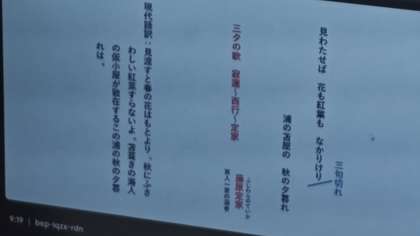 三句切れ
見わたせば 花も紅葉も なかりけり
浦の苫屋の 秋の夕暮れ
三夕の歌 寂蓮～西行～定家
ふじわらのていか
藤原定家
現代語訳：見渡すと春の花はもとより、秋にふさ
わしい紅葉すらないよ。苫葺きの海人
の仮小屋が散在するこの浦の秋の夕暮
れは。
9:19 | bsp-iqzx-rdn